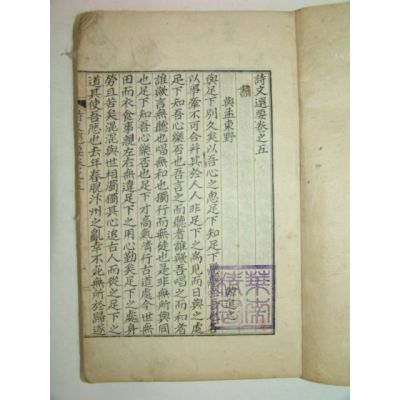 詩文選要卷之五
書
與孟東野
退之
與足下別久矣以吾心之思足下知足下懸懸於吾也各
以事牽不可合并其於人人非足下之為見而日與之處
足下知吾心樂否也吾言之而聽者誰歟吾唱之而和者
誰歟言無聽也唱無和也獨行而無徒也是非無所與同
也足下知吾心樂否也足下才高氣清行古道處今世無
田而衣食事親左右無違足下之用心勤矣足下之處身
勞且苦矣混混與世相濁獨其心追古人而從之足下之
道其使吾悲也去年春脫汴州之亂幸不死無所於歸遂